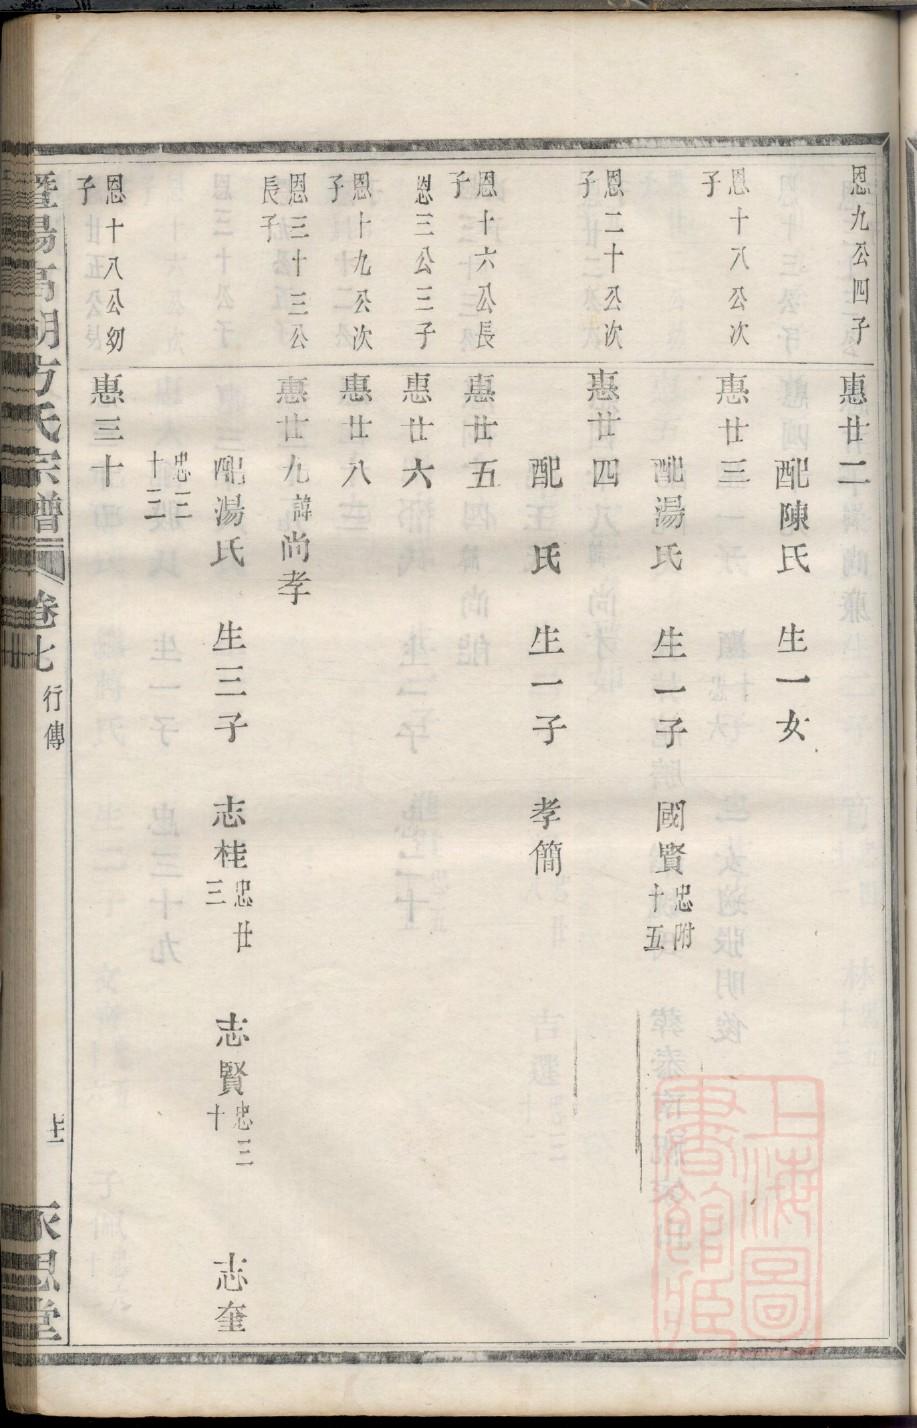 恩九公四子
惠廿二
配陳氏 生一女
恩十八公次子
惠廿三
配湯氏 生一子 國賢忠附十五
恩二十公次子
惠廿四
配 氏 生一子 孝簡
恩十六公長子
惠廿五
恩三公三子
惠廿六
恩十九公次子
惠廿八
恩三十三公長子
惠廿九諱尚孝
配湯氏 生三子 志桂忠廿三 志賢忠三十 志奎
忠三十三
恩十八公幼子
惠三十
暨陽高湖方氏宗譜 卷七 行傳 永思堂
上海圖書館藏